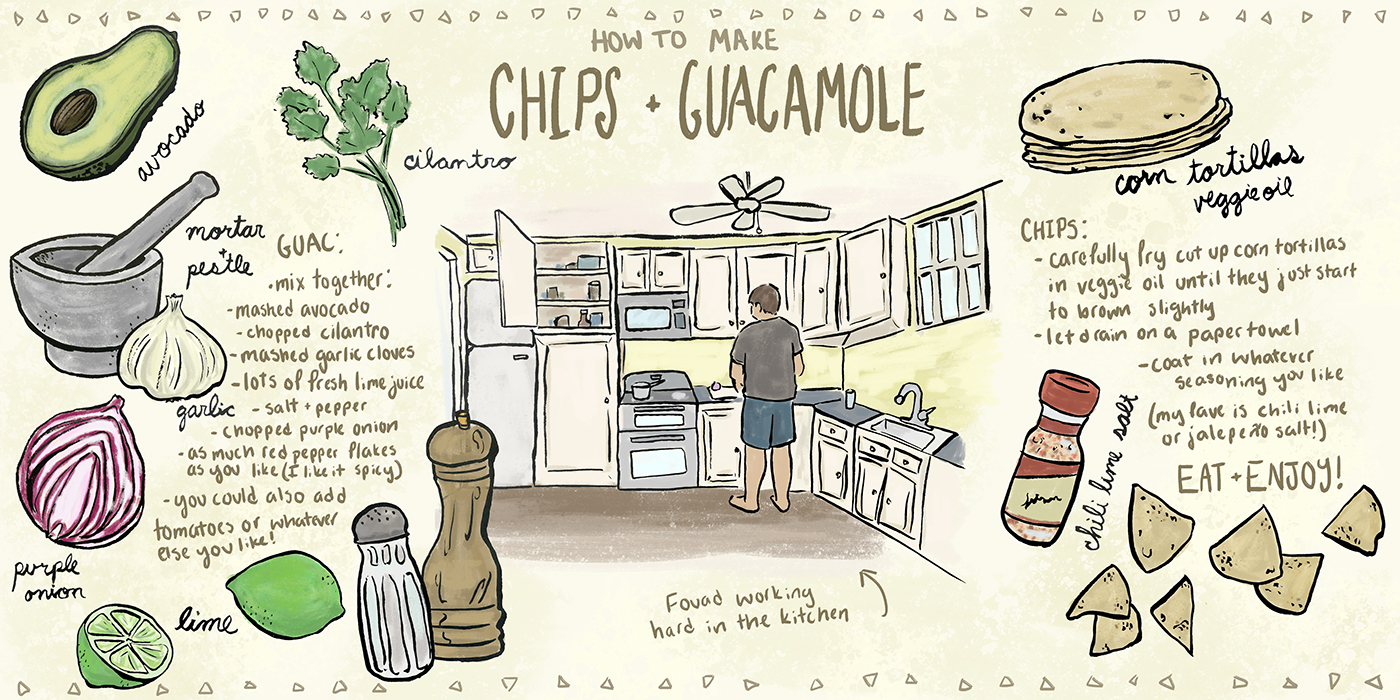 HOW TO MAKE
CHIPS + GUACAMOLE
avocado
cilantro
mortar
+
pestle
GUAC:
• mix together:
- mashed avocado
- chopped cilantro
- mashed garlic cloves
- lots of fresh lime juice
garlic
- salt + pepper
- chopped purple onion
- as much red pepper flakes
as you like (I like it spicy)
- you could also add
tomatoes or whatever
else you like!
purple
onion
lime
Fouad working
hard in the kitchen
corn tortillas
veggie oil
CHIPS:
- carefully fry cut up corn tortillas
in veggie oil until they just start
to brown slightly
- let drain on a paper towel
- coat in whatever
seasoning you like
(my fave is chili lime
or jalepeño salt!)
EAT + ENJOY!
chili lime salt